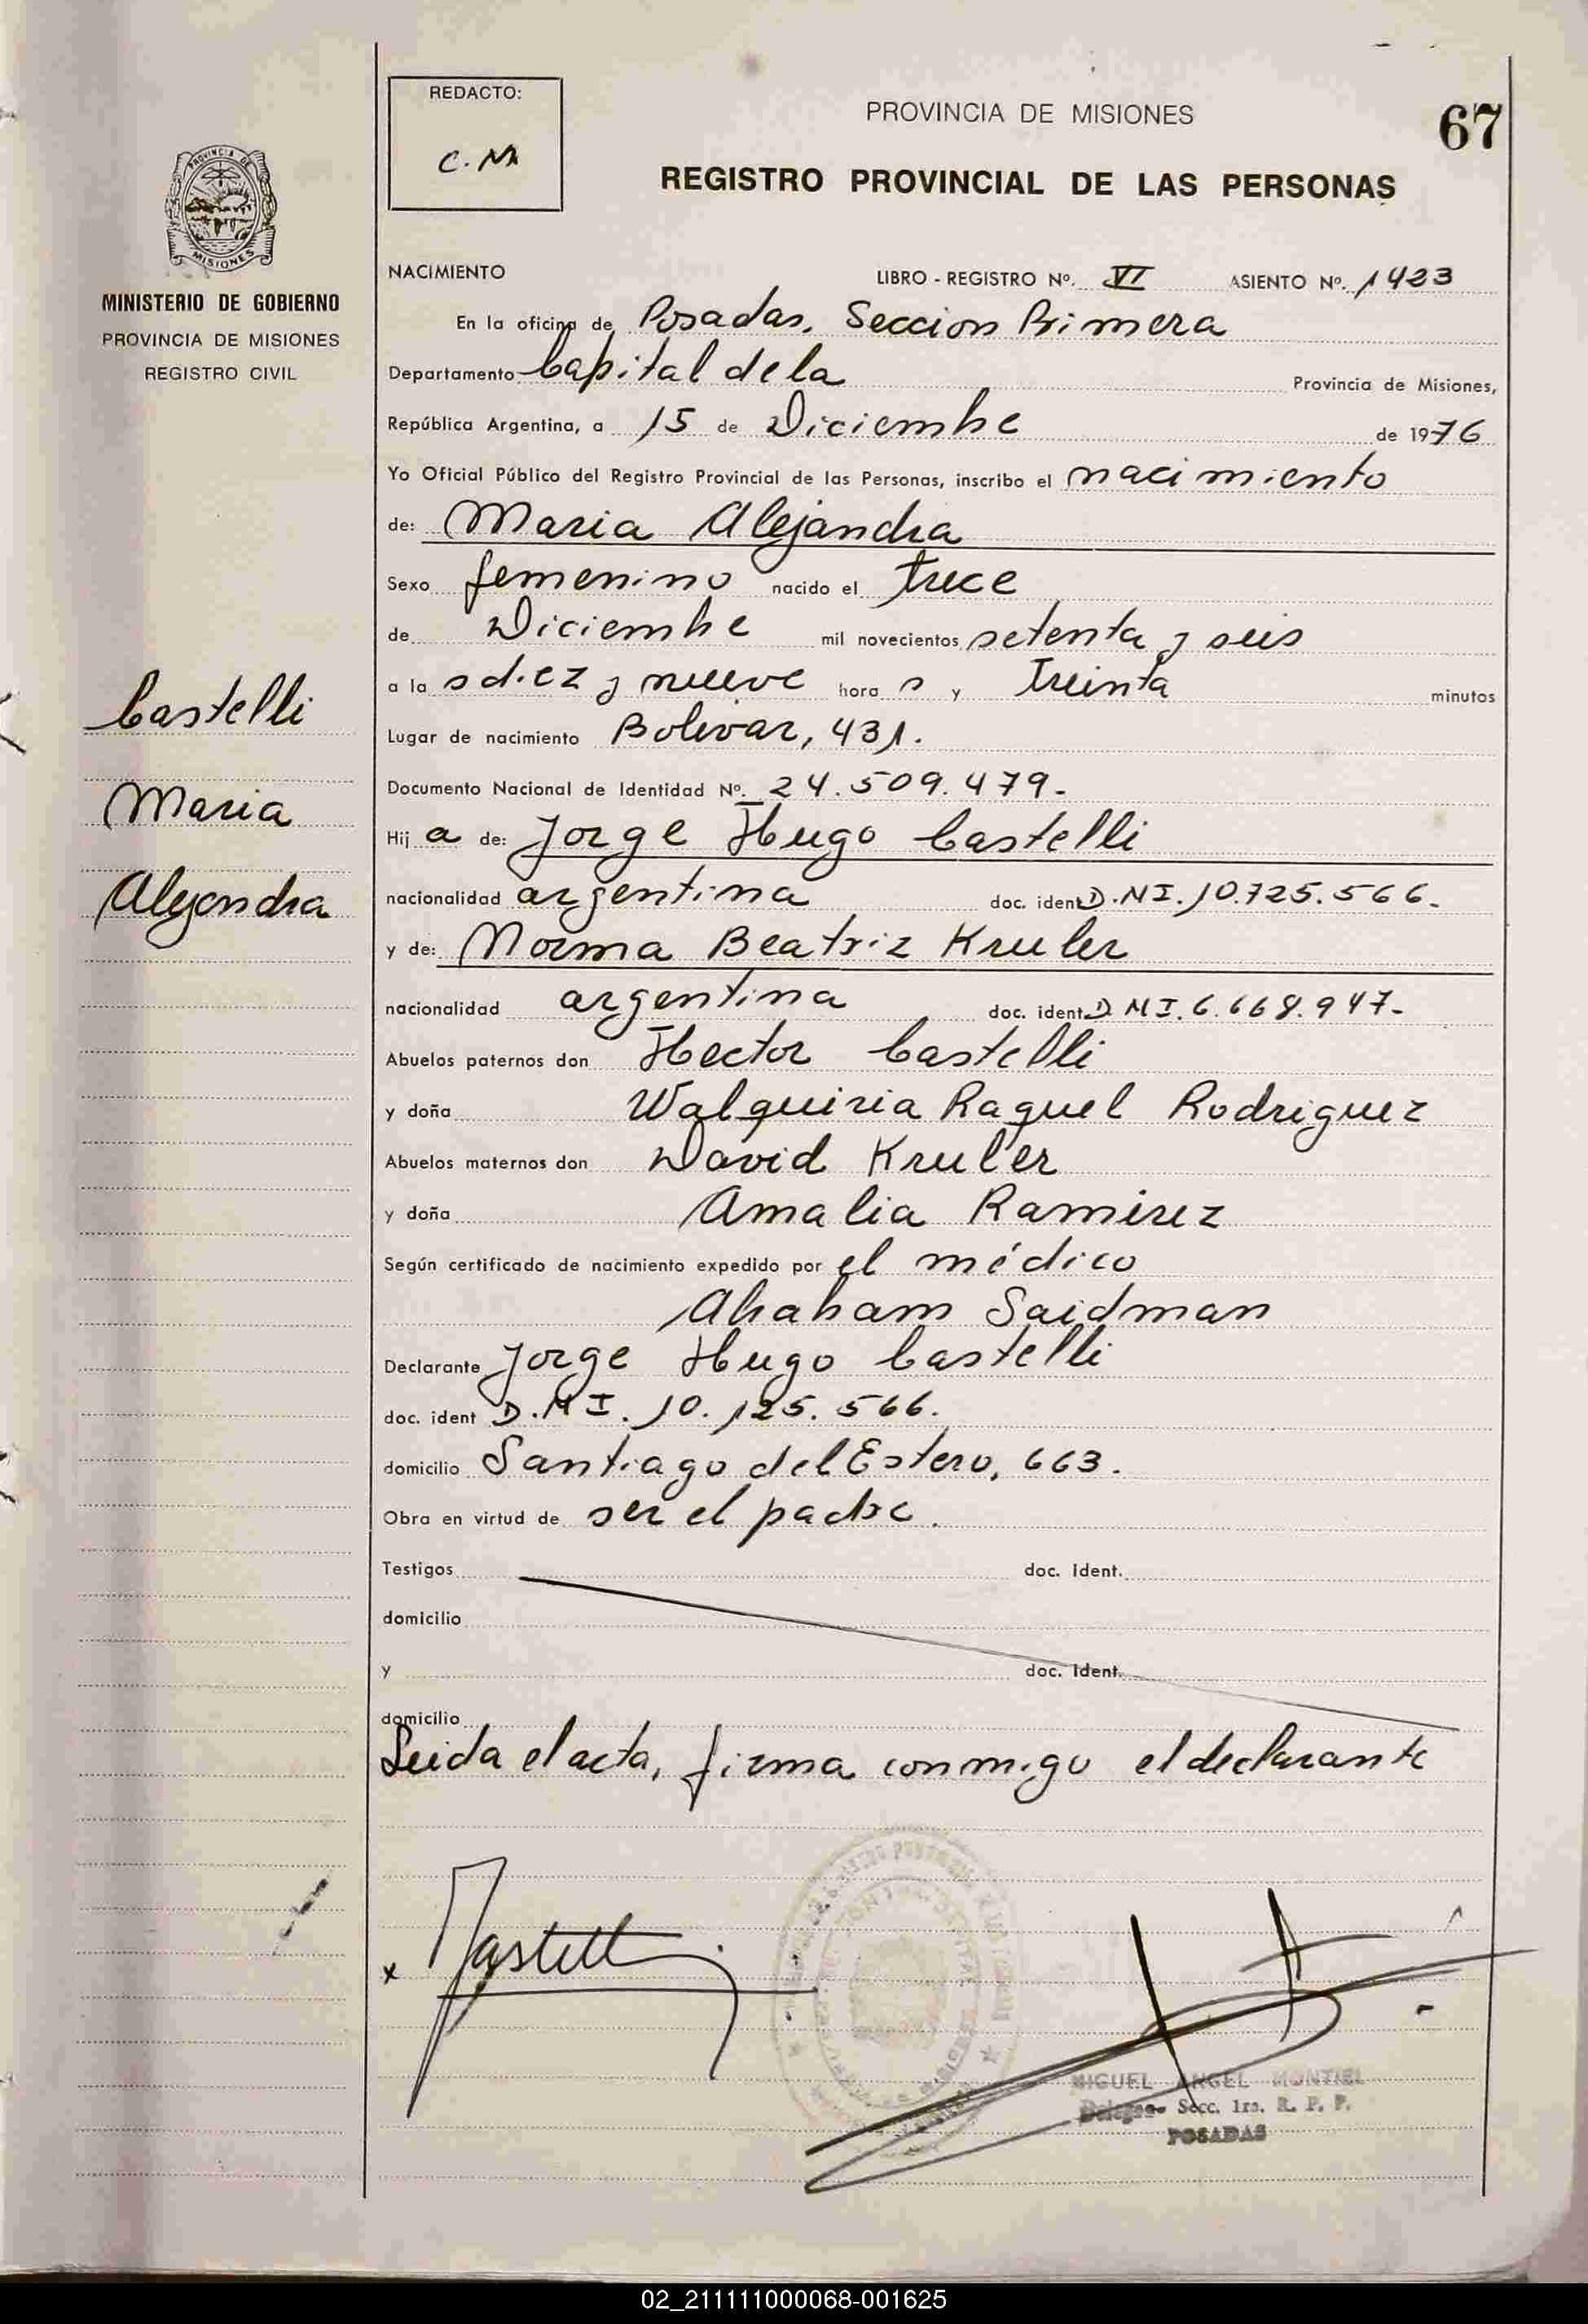 REDACTO:
C. M
PROVINCIA DE MISIONES
67
REGISTRO PROVINCIAL DE LAS PERSONAS
PROVINCIA DE
MISIONES
MINISTERIO DE GOBIERNO
PROVINCIA DE MISIONES
REGISTRO CIVIL
NACIMIENTO LIBRO - REGISTRO Nº. VI ASIENTO Nº. 1423
En la oficina de Posadas. Seccion Primera
Departamento Capital de la Provincia de Misiones,
República Argentina, a 15 de Diciembre de 1976
Yo Oficial Público del Registro Provincial de las Personas, inscribo el nacimiento
de: Maria Alejandra
Sexo femenino nacido el trece
de Diciembre mil novecientos setenta y seis
a la s diez y nueve hora s y Treinta minutos
Lugar de nacimiento Bolivar, 431.
Documento Nacional de Identidad Nº. 24.509.479-
Hij a de: Jorge Hugo Castelli
nacionalidad argentina doc. ident D.NI. 10.725.566-
y de: Norma Beatriz Kruler
nacionalidad argentina doc. ident. D NI. 6.668.947-
Abuelos paternos don Hector Castelli
y doña Walquiria Raquel Rodriguez
Abuelos maternos don David Kruler
y doña Amalia Ramirez
Según certificado de nacimiento expedido por el médico
Abraham Saidman
Declarante Jorge Hugo Castelli
doc. ident D.NI. 10.125.566.
domicilio Santiago del Estero, 663.
Obra en virtud de ser el padre.
Testigos doc. Ident.
domicilio
y doc. Ident.
domicilio
Leida el acta, firma conmigo el declarante
Castelli
Maria
Alejandra
x Castelli
MIGUEL ANGEL MONTIEL
Delegado Secc. 1ra. R. P. P.
POSADAS
02_211111000068-001625